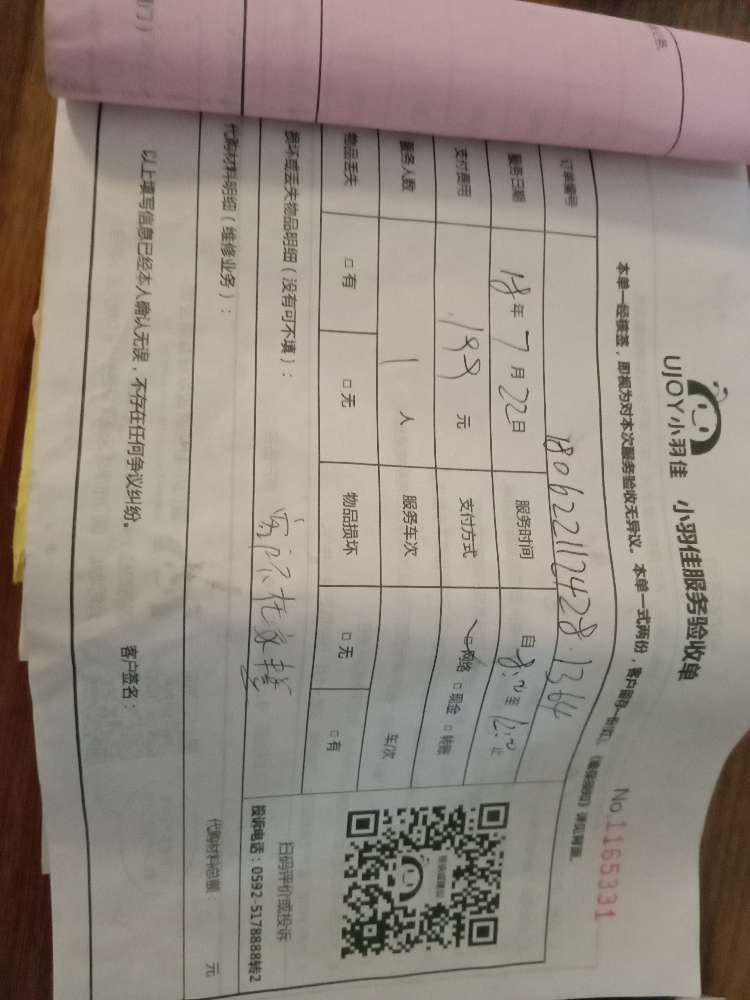 UJOY小羽佳 小羽佳服务验收单
No 1165331
本单一经核签，即视为对本次服务验收无异议。本单一式两份，客户留存一份
订单编号 1806221124281364
服务日期 18年7月22日 服务时间 自8:00至12:00止
支付费用 199元 支付方式 □网络 □现金 □转账
服务人数 1人 服务车次 车/次
物品丢失 □有 □无 物品损坏 □无 □有
扫码评价或投诉
投诉电话：0592-5178888转2
损坏或丢失物品明细（没有可不填）：
代购材料明细（维修业务）： 代购材料总额： 元
以上填写信息已经本人确认无误，不存在任何争议纠纷。 客户签名：